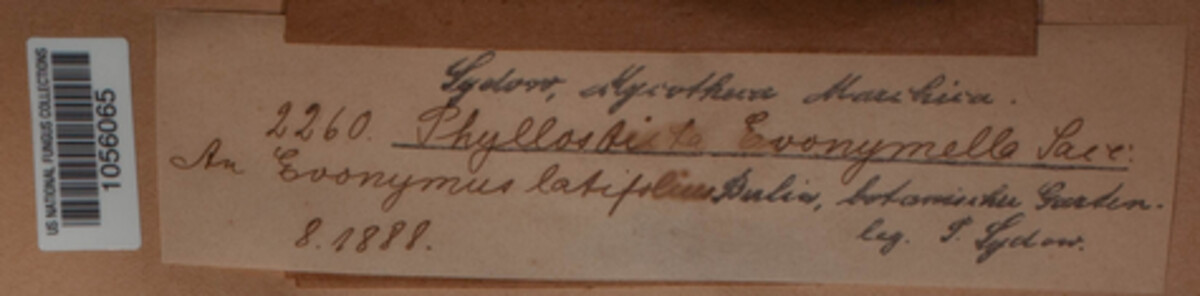 US NATIONAL FUNGUS COLLECTIONS
1056065
Sydow, Mycotheca Marchica.
2260. Phyllosticta Evonymella Sacc.
An Evonymus latifolius Berlin, botanischer Garten.
8.1888. leg. P. Sydow.